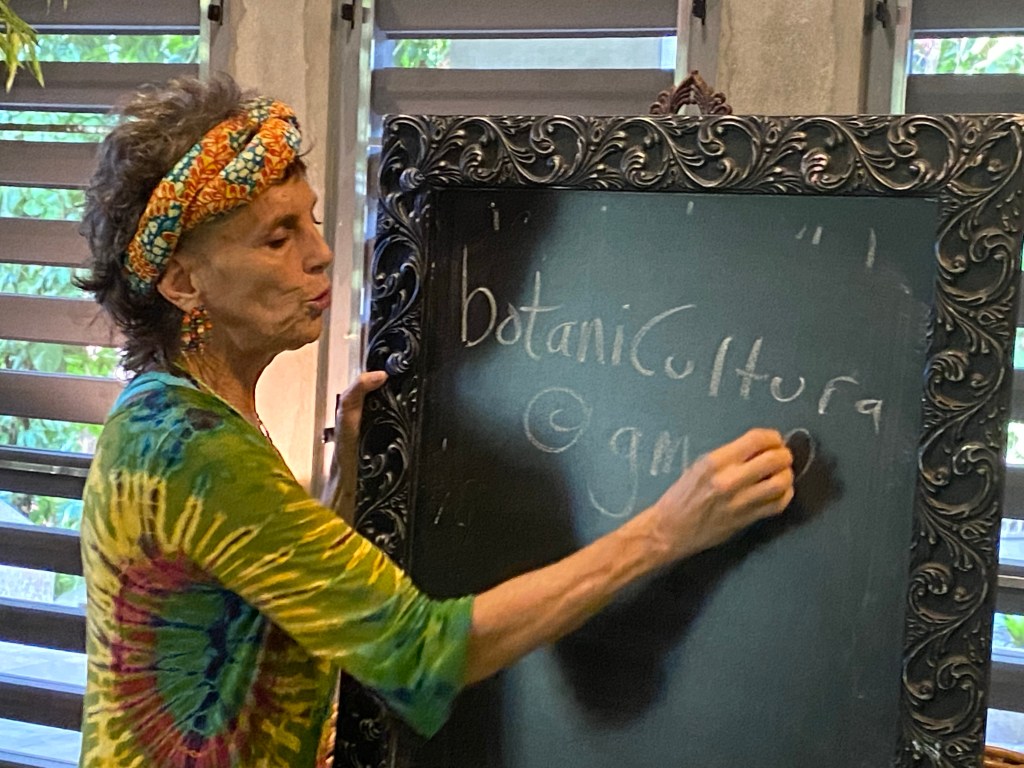 botaniCultura
@ gm